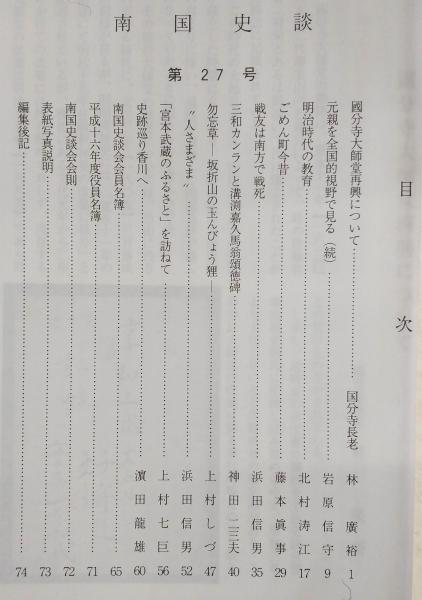 南国史談
第27号
目次
國分寺大師堂再興について 国分寺長老 林廣裕 1
元親を全国的視野で見る(続) 岩原信守 9
明治時代の教育 北村涛江 17
ごめん町今昔 藤本眞事 29
戦友は南方で戦死 浜田信男 35
三和カンランと溝渕嘉久馬翁頌徳碑 神田二三夫 40
勿忘草―坂折山の玉んびょう狸― 上村しづ 47
〃人さまざま〃 浜田信男 52
「宮本武蔵のふるさと」を訪ねて 上村七巨 56
史跡巡り香川へ 濵田龍雄 60
南国史談会会員名簿 65
平成十六年度役員名簿 71
南国史談会会則 72
表紙写真説明 73
編集後記 74